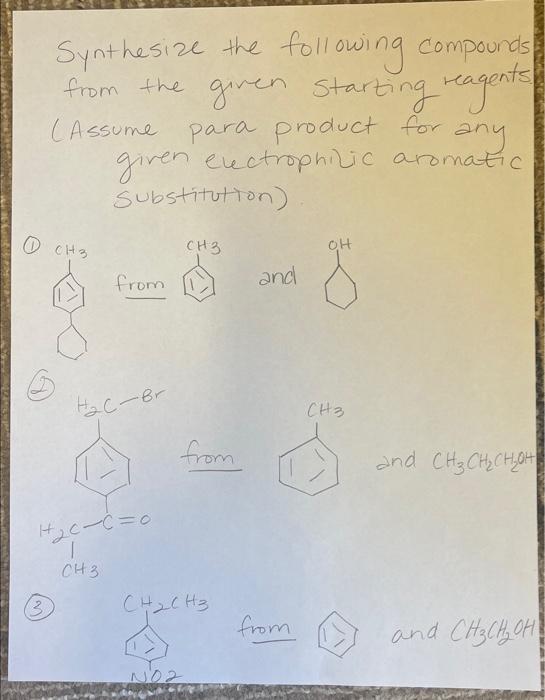 Synthesize the following compounds
from the given starting reagents.
(Assume para product for any
given electrophilic aromatic
substitution)
① CH3 from CH3 and OH
② H2C-Br from CH3 and CH3CH2CH2OH
H2C-C=O
CH3
③ CH2CH3 from and CH3CH2OH
NO2